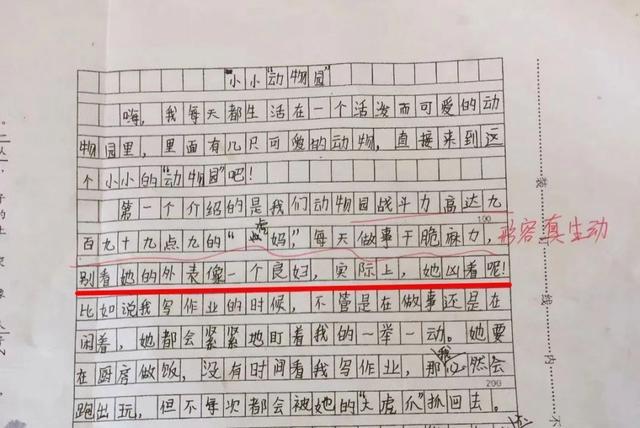 "小小"动物园"
嗨，我每天都生活在一个活泼而可爱的动
物园里，里面有几只可爱的动物，直接来到这
个小小的"动物园"吧！
第一个介绍的是我们动物园战斗力高达九
100
百九十九点九的"虎妈"，每天做事干脆麻力，
形容真生动
别看她的外表像一个良妇，实际上，她凶着呢！
比如说我写作业的时候，不管是在做事还是在
闲着，她都会紧紧地盯着我的一举一动。她要
在厨房做饭，没有时间看我写作业，那我必然会
200
跑出玩，但不每次都会被她的"大虎爪"抓回去。
装
线
内
不